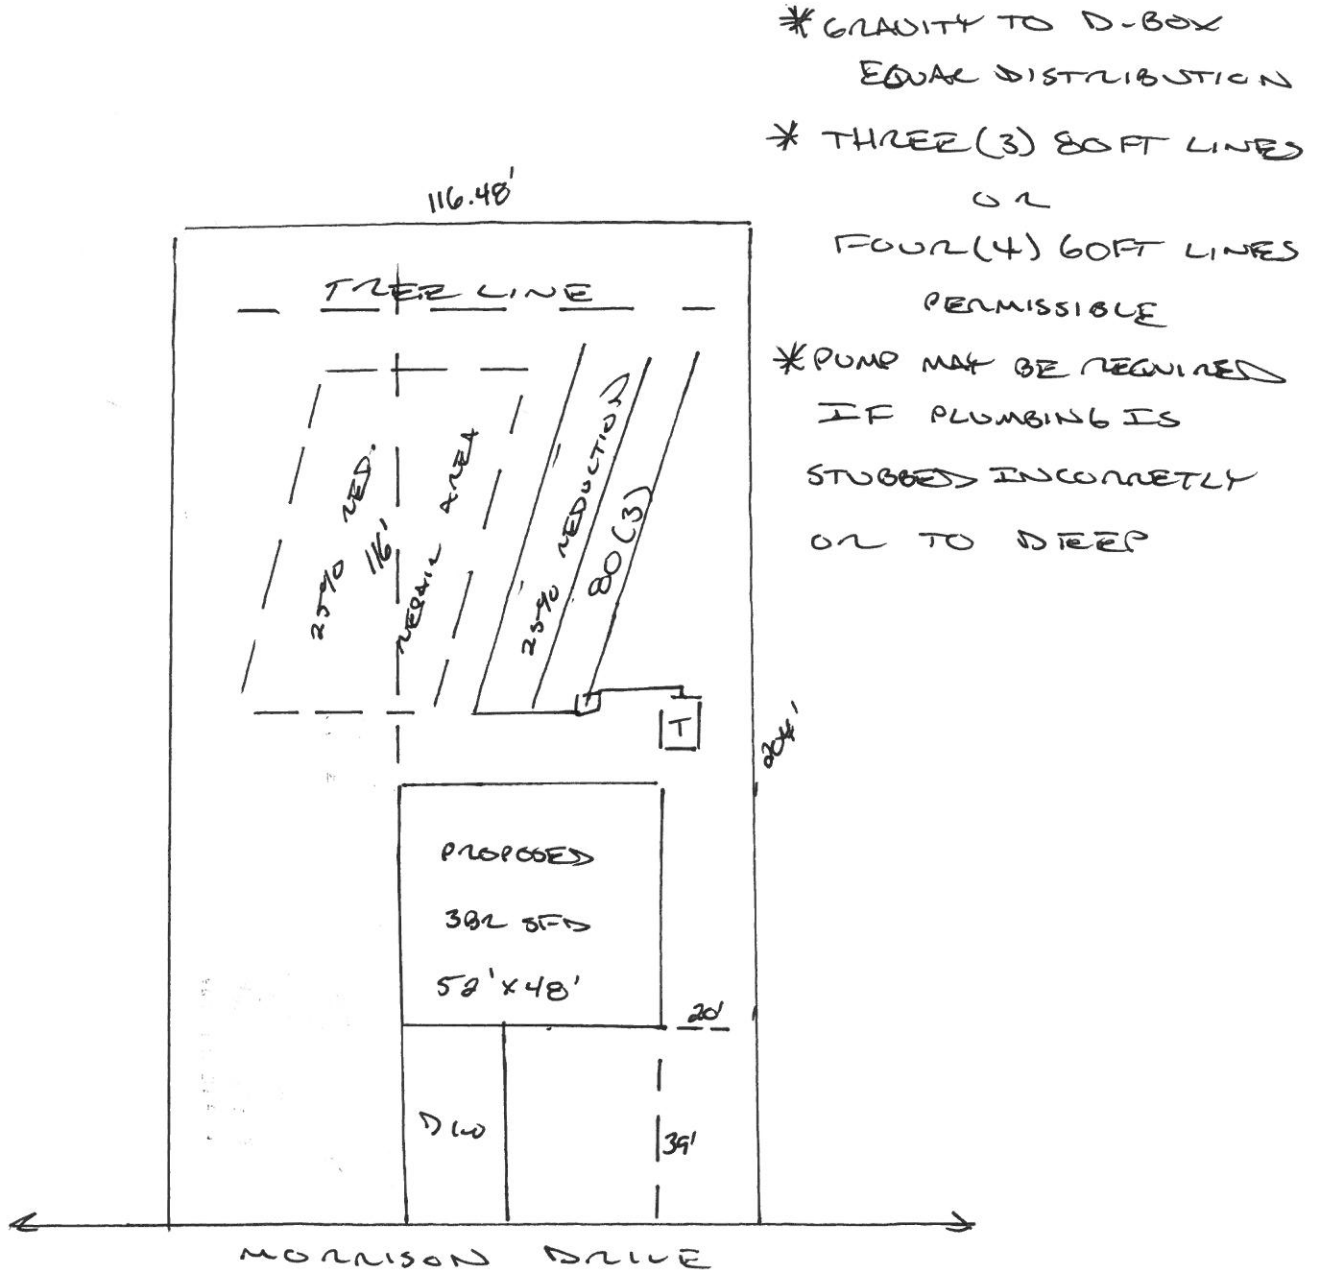 * GRAVITY TO D-BOX
EQUAL DISTRIBUTION
* THREE (3) 80FT LINES
OR
FOUR (4) 60FT LINES
PERMISSIBLE
* PUMP MAY BE REQUIRED
IF PLUMBING IS
STUBBED INCORRETLY
OR TO DEEP
116.48'
TREE LINE
25% RED.
116'
REPAIR AREA
25% REDUCTION
80 (3)
T
204'
PROPOSED
3BR SFD
52' X 48'
20'
DW
39'
MORRISON DRIVE